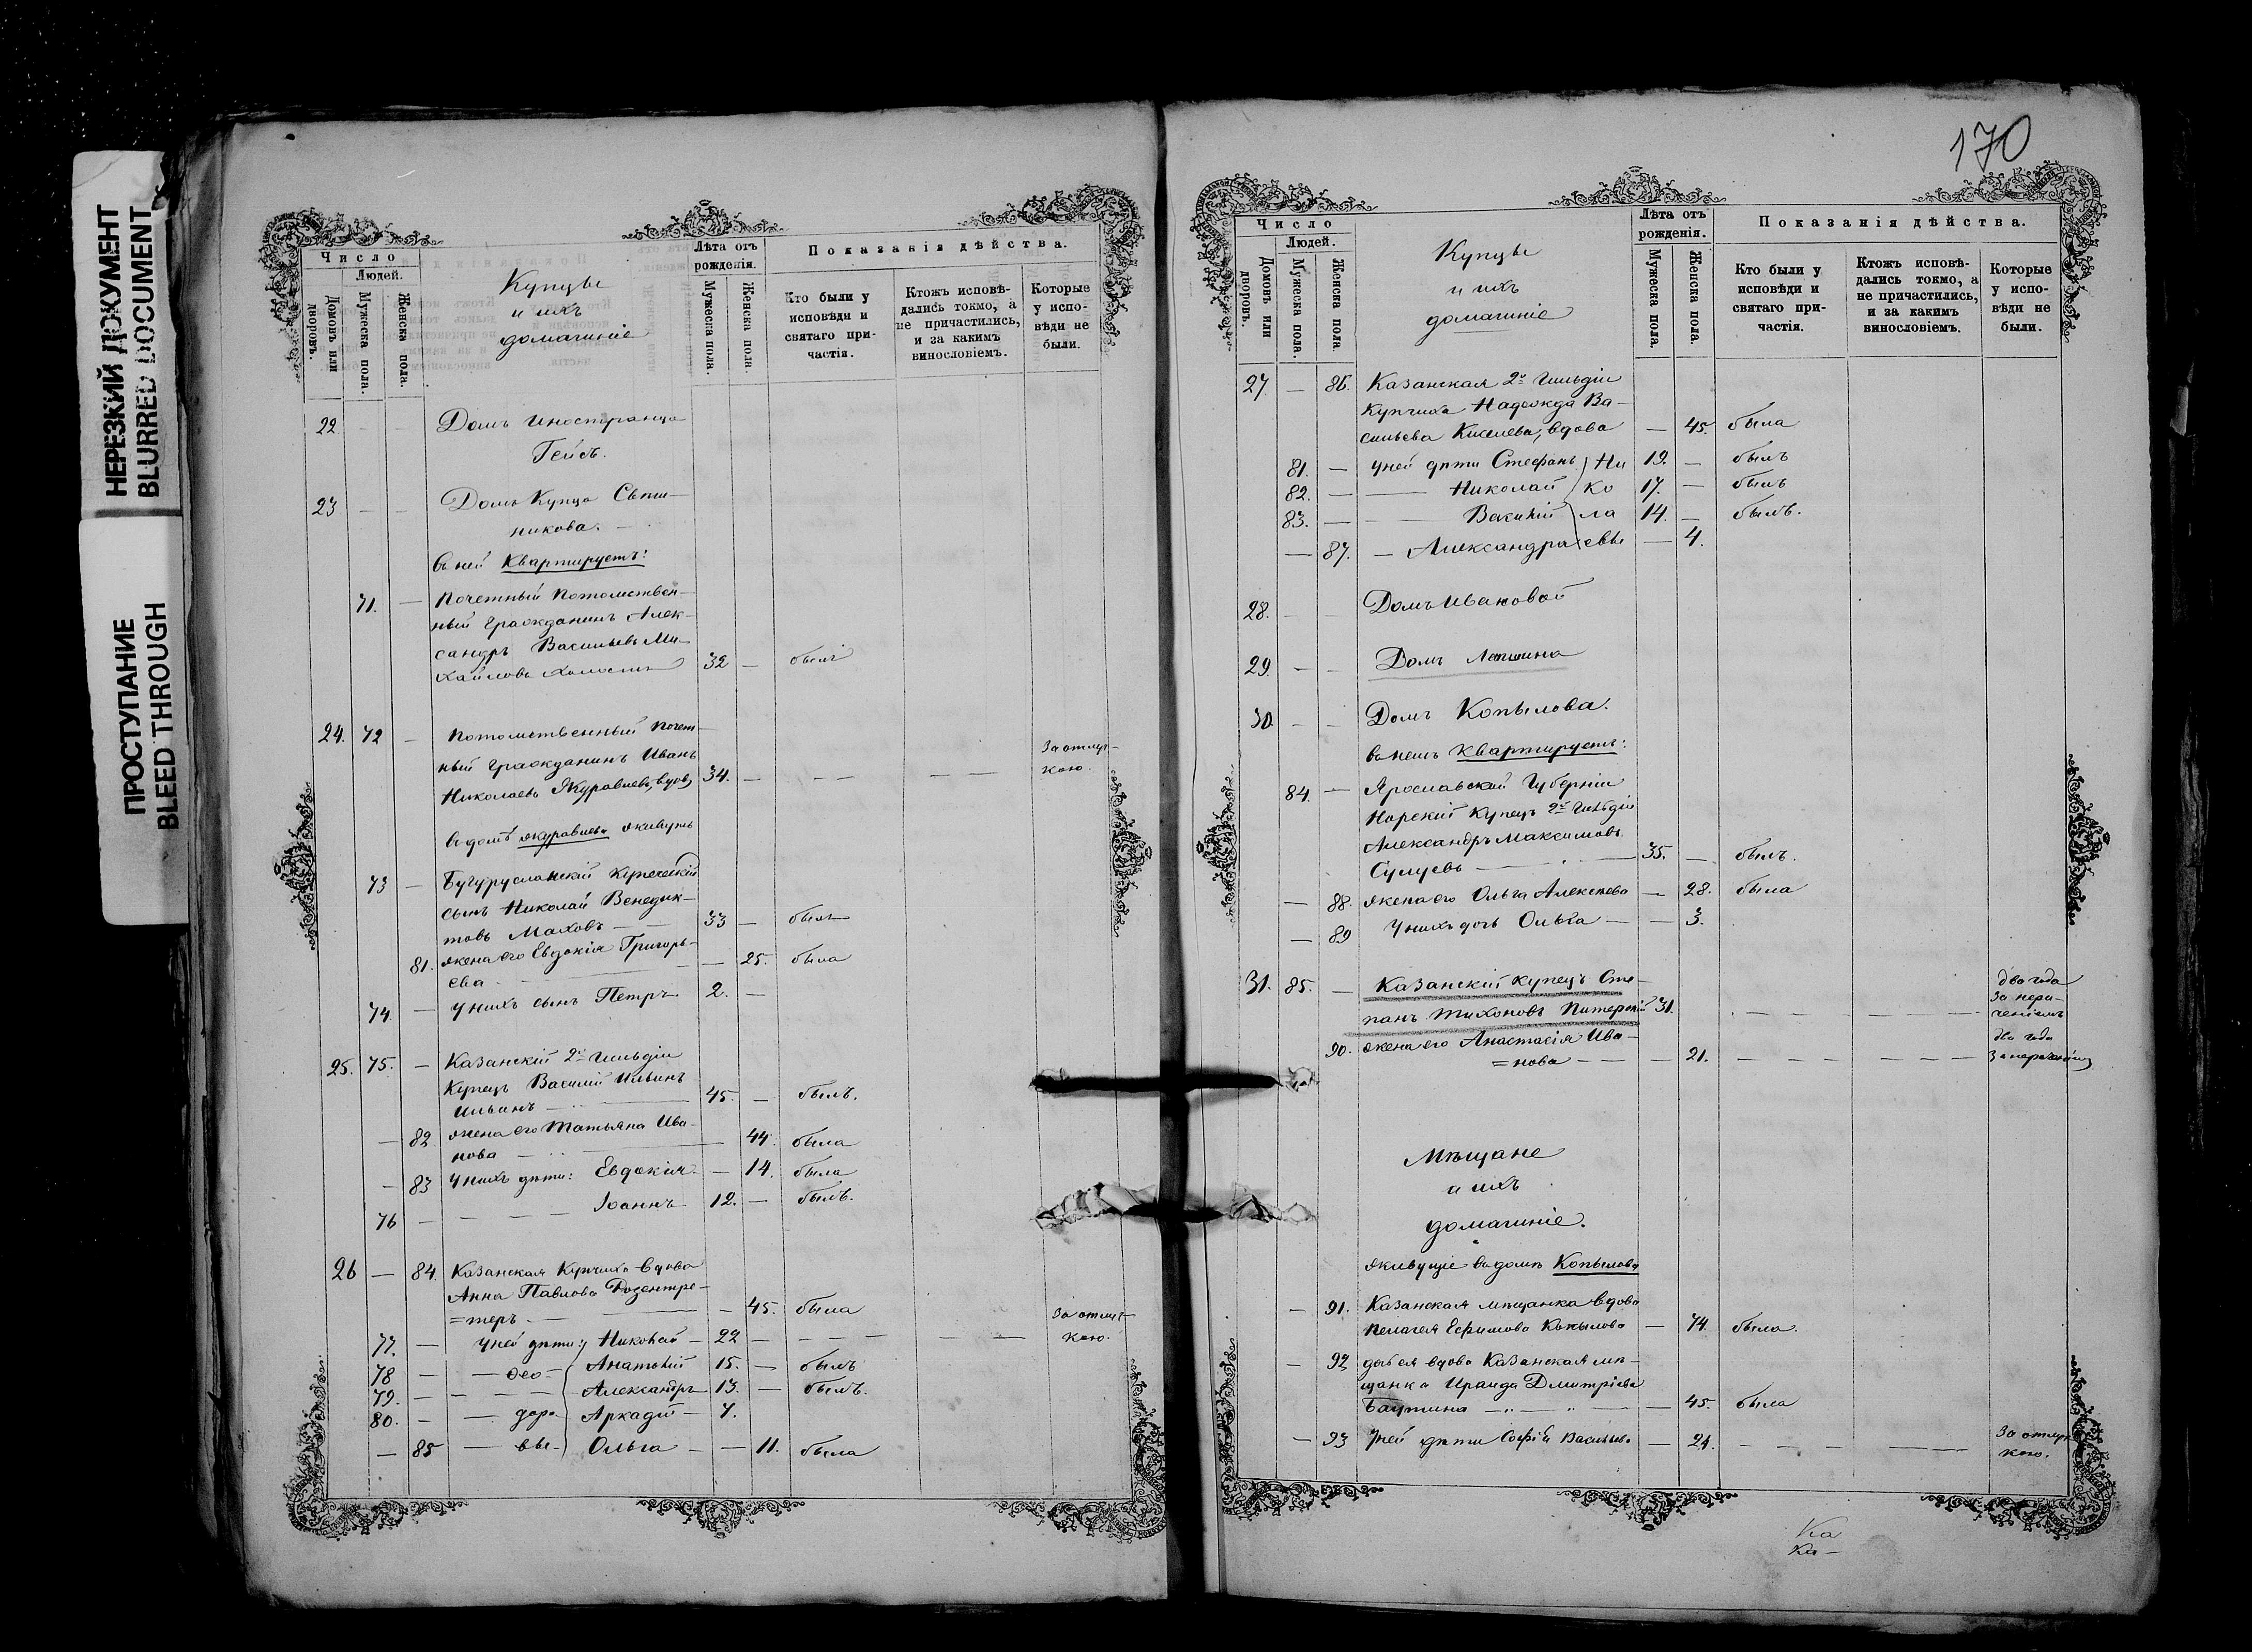 НЕРЕЗКИЙ ДОКУМЕНТ
BLURRED DOCUMENT
ПРОСТУПАНИЕ
BLEED THROUGH
Число
Людей.
Домовъ или дворовъ.
Мужеска пола.
Женска пола.
Купцы
и ихъ
домашніе
Лѣта отъ рожденія.
Мужеска пола.
Женска пола.
Показанія дѣйства.
Кто были у исповѣди и святаго причастія.
Ктожъ исповѣдались токмо, а не причастились, и за какимъ винословіемъ.
Которые у исповѣди не были.
22 — — Домъ иностранца
Гейсъ.
23 — — Домъ Купца Свѣш-
никова. —
въ ней Квартируетъ:
71. — Почетный Потомствен-
ный Гражданинъ Алек-
сандръ Васильевъ Ми-
хайловъ холостъ 32 — былъ
24. 72 — Потомственный Почет-
ный Гражданинъ Иванъ
Николаевъ Журавлевъ, вдов 34. — — — — — За отлуч-
кою.
въ домѣ Журавлева живутъ
73 — Бугурусланскій Купеческій
сынъ Николай Венедик-
товъ Маховъ — 33 — былъ
81. жена его Евдокія Григорь-
ева — — 25. была
74. — у нихъ сынъ Петръ 2. —
25. 75. — Казанскій 2й Гильдіи
Купецъ Василій Ильинъ
Ильинъ — 45. — былъ.
— 82 жена его Татьяна Ива-
нова — 44. была
— 83 у нихъ дѣти: Евдокія — 14. была
76 — — — — Іоаннъ 12. — былъ.
26 — 84. Казанская Купчиха вдова
Анна Павлова Розентре-
=теръ. — — 45. была
77. — у ней дѣти: Николай — 22 — — — — — — За отлуч-
кою.
78 — — Ѳео- Анатолій 15. — былъ
79. — — — — Александръ 13. — былъ.
80. — — доро- Аркадій — 7.
— 85 — вы- Ольга — — 11. была
170
Число
Людей.
Домовъ или дворовъ.
Мужеска пола.
Женска пола
Купцы
и ихъ
домашніе
Лѣта отъ рожденія.
Мужеска пола.
Женска пола.
Показанія дѣйства.
Кто были у исповѣди и святаго причастія.
Ктожъ исповѣдались токмо, а не причастились, и за какимъ винословіемъ.
Которые у исповѣди не были.
27 — 86. Казанская 2й Гильдіи
Купчиха Надежда Ва-
сильева Киселева, вдова — 45. была
81. — у ней дѣти Стефанъ Ни 19. — былъ
82. — — Николай ко 17. — былъ
83. — — Василій ла 14. — былъ.
— 87. — Александра евы — 4.
28. — — Домъ Ивановой
29. — — Домъ Лапшина
30. — — Домъ Копылова.
въ немъ Квартируетъ:
84. — Ярославской Губерніи
Норскій Купецъ 2й Гильдіи
Александръ Максимовъ
Сулуевъ — 35. — былъ.
— 88. жена его Ольга Алексѣева — 28. была
— 89 у нихъ дочь Ольга — — 3.
31. 85. — Казанскій купецъ Сте-
панъ Тихоновъ Питерскій 31. — — — — два года
За нера-
ченіемъ
90. жена его Анастасія Ива-
=нова — — 21. — — — — два года
За нераченіем
Мѣщане
и ихъ
домашніе.
живущіе въ домѣ Копылова
— 91. Казанская мѣщанка вдова
Пелагея Ефимова Копылова — 74. была.
— 92 дочь ея вдова Казанская мѣ-
щанка Ираида Дмитріева
— — 45. была
— 93 У ней дѣти Софія Васильева — 24. — — — — За отлуч
кою.
Ка